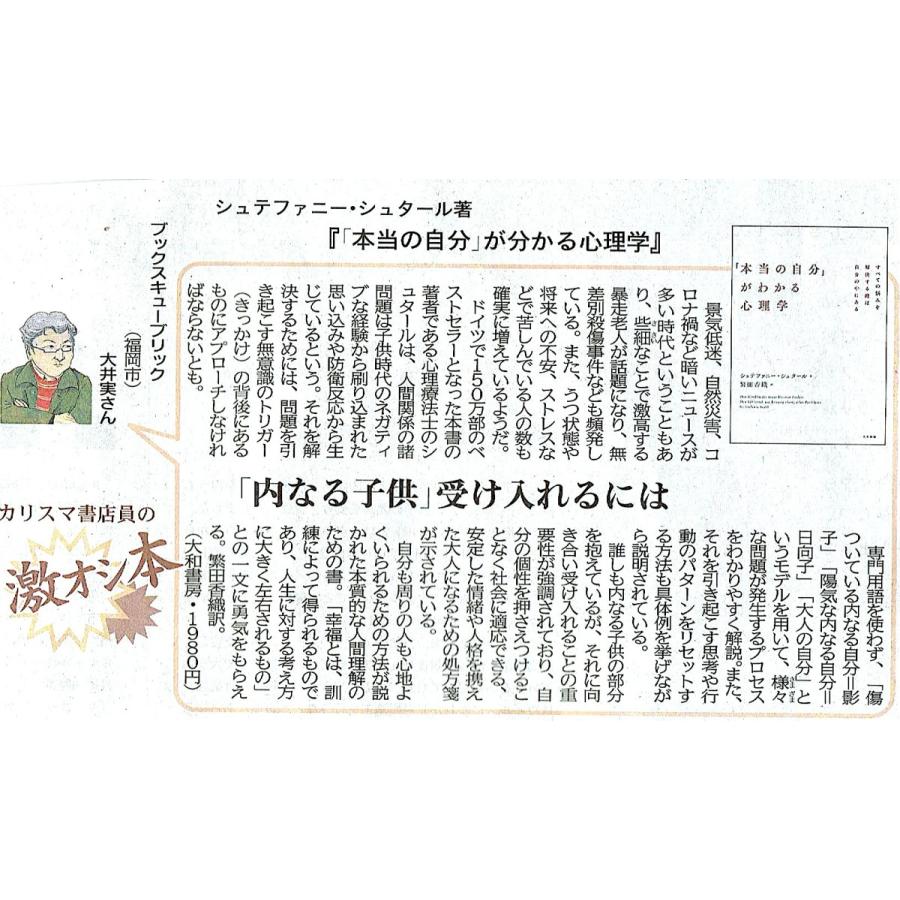 シュテファニー・シュタール著
『「本当の自分」が分かる心理学』
すべての悩みを
解決する鍵は
自分の中にある
「本当の自分」
がわかる
心理学
シュテファニー・シュタール 著
繁田香織 訳
大和書房
景気低迷、自然災害、コ
ロナ禍など暗いニュースが
多い時代ということもあ
り、些細なことで激高する
暴走老人が話題になり、無
差別殺傷事件なども頻発し
ている。また、うつ状態や
将来への不安、ストレスな
どで苦しんでいる人の数も
確実に増えているようだ。
ドイツで150万部のベ
ストセラーとなった本書の
著者である心理療法士のシ
ュタールは、人間関係の諸
問題は子供時代のネガティ
ブな経験から刷り込まれた
思い込みや防衛反応から生
じているという。それを解
決するためには、問題を引
き起こす無意識のトリガー
（きっかけ）の背後にある
ものにアプローチしなけれ
ばならないとも。
「内なる子供」受け入れるには
専門用語を使わず、「傷
ついている内なる自分＝影
子」「陽気な内なる自分＝
日向子」「大人の自分」と
いうモデルを用いて、様々
な問題が発生するプロセス
をわかりやすく解説。また、
それを引き起こす思考や行
動のパターンをリセットす
る方法も具体例を挙げなが
ら説明されている。
誰しも内なる子供の部分
を抱えているが、それに向
き合い受け入れることの重
要性が強調されており、自
分の個性を押さえつけるこ
となく社会に適応できる、
安定した情緒や人格を携え
た大人になるための処方箋
が示されている。
自分も周りの人も心地よ
くいられるための方法が説
かれた本質的な人間理解の
ための書。「幸福とは、訓
練によって得られるもので
あり、人生に対する考え方
に大きく左右されるもの」
との一文に勇気をもらえ
る。繁田香織訳。
（大和書房・1980円）
ブックスキューブリック
（福岡市）
大井実さん
カリスマ書店員の
激オシ本